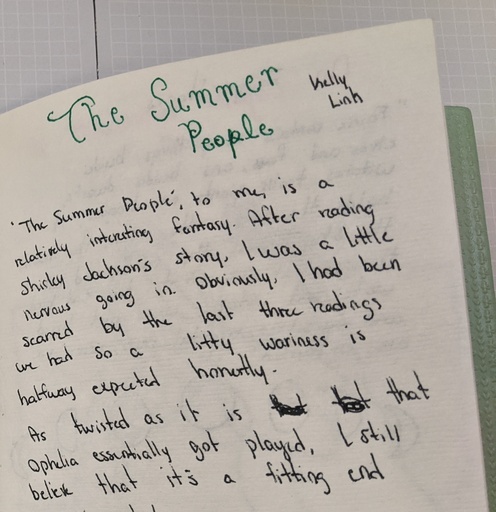 The Summer
People
Kelly
Link
'The Summer People', to me, is a
relatively interesting fantasy. After reading
Shirley Jackson's story, I was a little
nervous going in. Obviously, I had been
scarred by the last three readings
we had so a litty wariness is
halfway expected honestly.
As twisted as it is that
Ophelia essentially got played, I still
believe that it's a fitting end